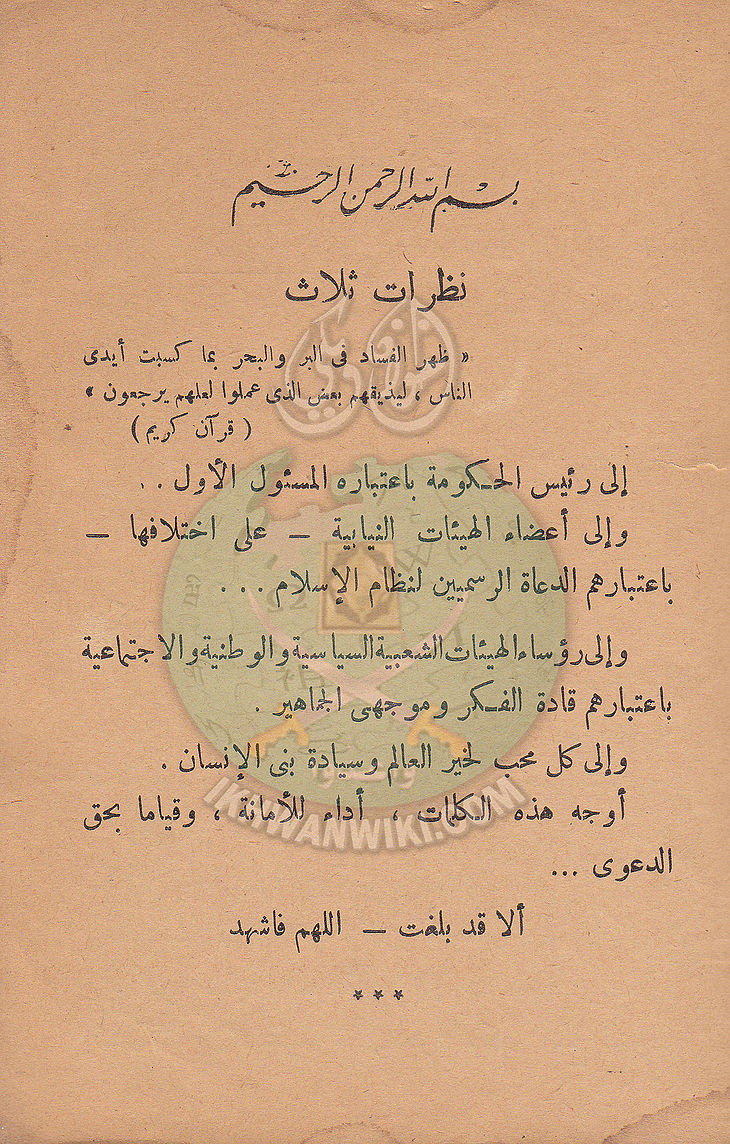 بسم الله الرحمن الرحيم
نظرات ثلاث
« ظهر الفساد فى البر والبحر بما كسبت أيدى
الناس ، ليذيقهم بعض الذى عملوا لعلهم يرجعون »
( قرآن كريم )
إلى رئيس الحكومة باعتباره المسئول الأول . .
وإلى أعضاء الهيئات النيابية – على اختلافها –
باعتبارهم الدعاة الرسميين لنظام الإسلام . . .
وإلى رؤساء الهيئات الشعبية السياسية والوطنية والاجتماعية
باعتبارهم قادة الفكر وموجهى الجماهير .
وإلى كل محب لخير العالم وسيادة بنى الإنسان .
أوجه هذه الكلمات ، أداء للأمانة ، وقياما بحق
الدعوى ...
ألا قد بلغت – اللهم فاشهد
* * *
IKHWANWIKI.COM